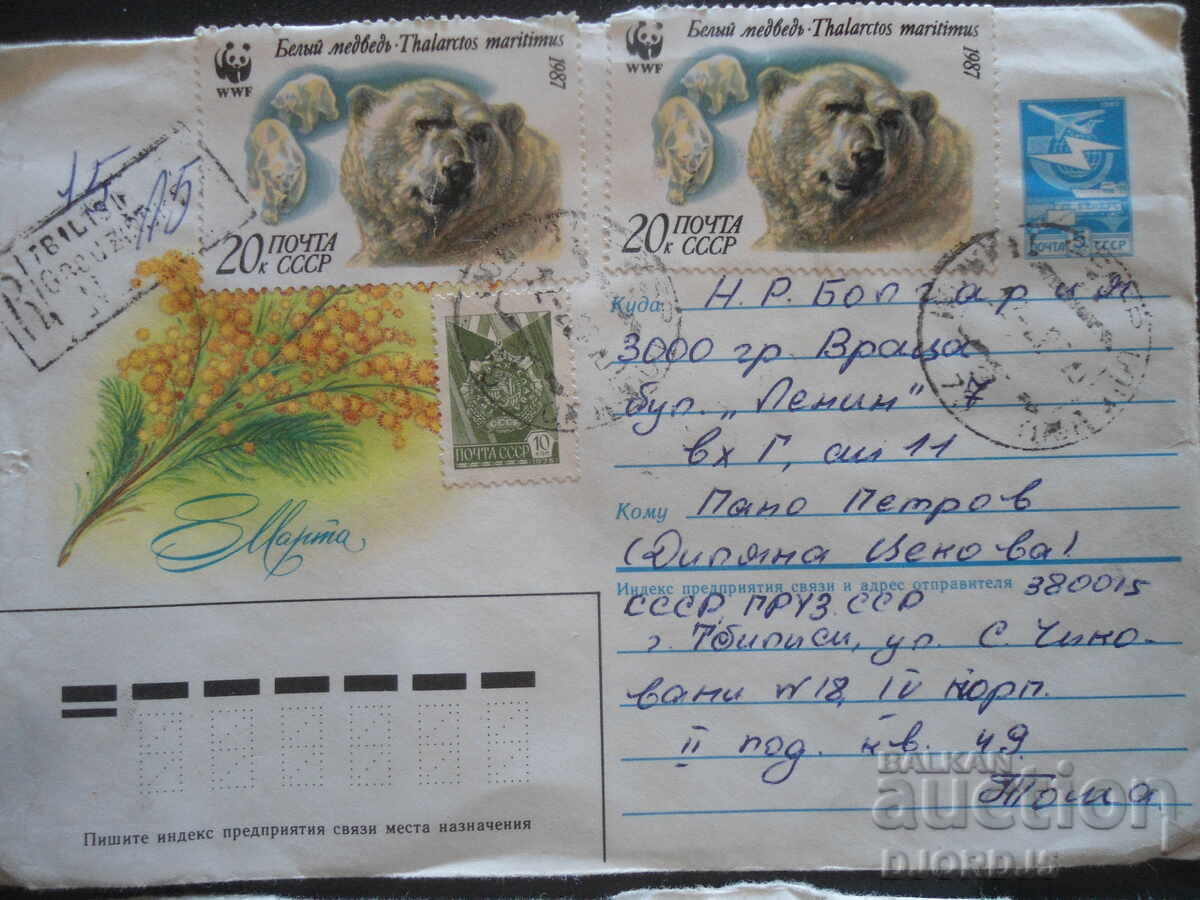 Белый медведь · Thalarctos maritimus
1987
WWF
20к ПОЧТА СССР
Белый медведь · Thalarctos maritimus
1987
WWF
20к ПОЧТА СССР
ПОЧТА 5 СССР
15
A5
TBILISI
R
10 коп
ПОЧТА СССР
1976
8 Марта
Куда Н.Р. Болгария
3000 гр. Враца
бул. „Ленин" 7
вх Г, ап 11
Кому Пано Петров
(Диляна Цекова)
Индекс предприятия связи и адрес отправителя 380015
СССР, ГРУЗ. ССР
г. Тбилиси, ул. С. Чико-
вани N18, IV корп.
II под. кв. 49
Тома
Пишите индекс предприятия связи места назначения
BALKAN
auction
DJORDJS